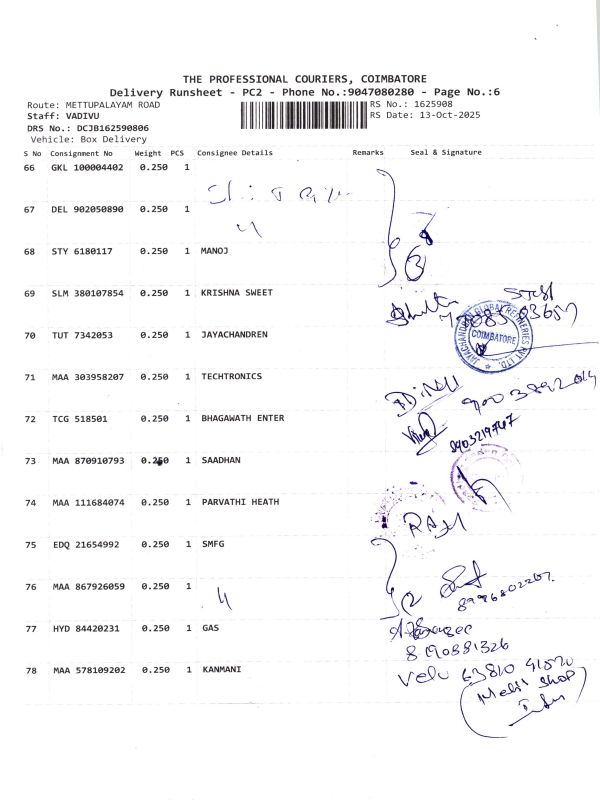 THE PROFESSIONAL COURIERS, COIMBATORE
Delivery Runsheet - PC2 - Phone No.:9047080280 - Page No.:6
Route: METTUPALAYAM ROAD
Staff: VADIVU
DRS No.: DCJB162590806
Vehicle: Box Delivery
RS No.: 1625908
RS Date: 13-Oct-2025
S No Consignment No Weight PCS Consignee Details Remarks Seal & Signature
66 GKL 100004402 0.250 1
67 DEL 902050890 0.250 1
68 STY 6180117 0.250 1 MANOJ
69 SLM 380107854 0.250 1 KRISHNA SWEET
70 TUT 7342053 0.250 1 JAYACHANDREN
JAYACHANDRAN GLOBAL REFINERIES PVT. LTD.
COIMBATORE
71 MAA 303958207 0.250 1 TECHTRONICS
72 TCG 518501 0.250 1 BHAGAWATH ENTER
8903219747
73 MAA 870910793 0.250 1 SAADHAN
74 MAA 111684074 0.250 1 PARVATHI HEATH
75 EDQ 21654992 0.250 1 SMFG
76 MAA 867926059 0.250 1
77 HYD 84420231 0.250 1 GAS
8190881326
78 MAA 578109202 0.250 1 KANMANI
Velu
Shop